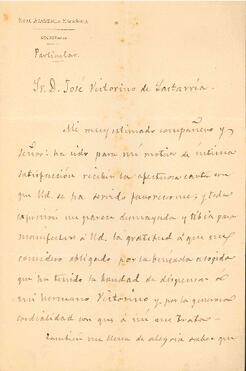 REAL ACADEMIA ESPAÑOLA
SECRETARÍA
Particular.
Sr. D. José Victorino de Lastarria.
Mi muy estimado compañero y
señor: ha sido para mí motivo de íntima
satisfacción recibir la afectuosa carta con
que Ud. se ha servido favorecerme; y toda
expresión me parece desmayada y tibia para
manifestar á Ud. la gratitud á que me
considero obligado por la benévola acogida
que ha tenido la bondad de dispensar á
mi hermano Victorino y por la generosa
cordialidad con que á mí me trata.
También me llena de alegría saber que